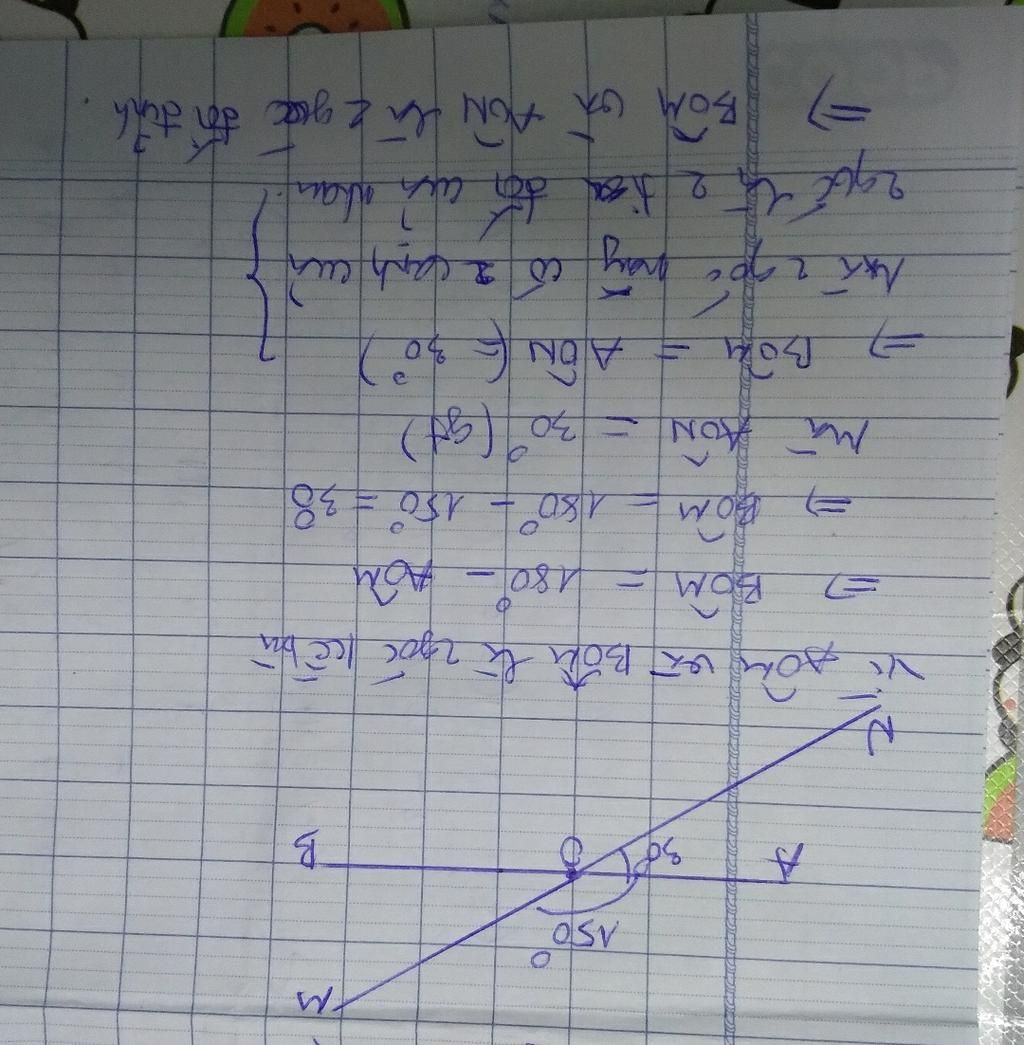 M
150°
A 30° O B
N
Vì AÔM và BÔM là 2 góc kề bù
⇒ BÔM = 180° - AÔM
⇒ BÔM = 180° - 150° = 30°
Mà AÔN = 30° (gt)
⇒ BÔM = AÔN (= 30°)
Mà 2 góc này có 2 cạnh của
2 góc là 2 tia đối của nhau.
⇒ BÔM và AÔN là 2 góc đối đỉnh.